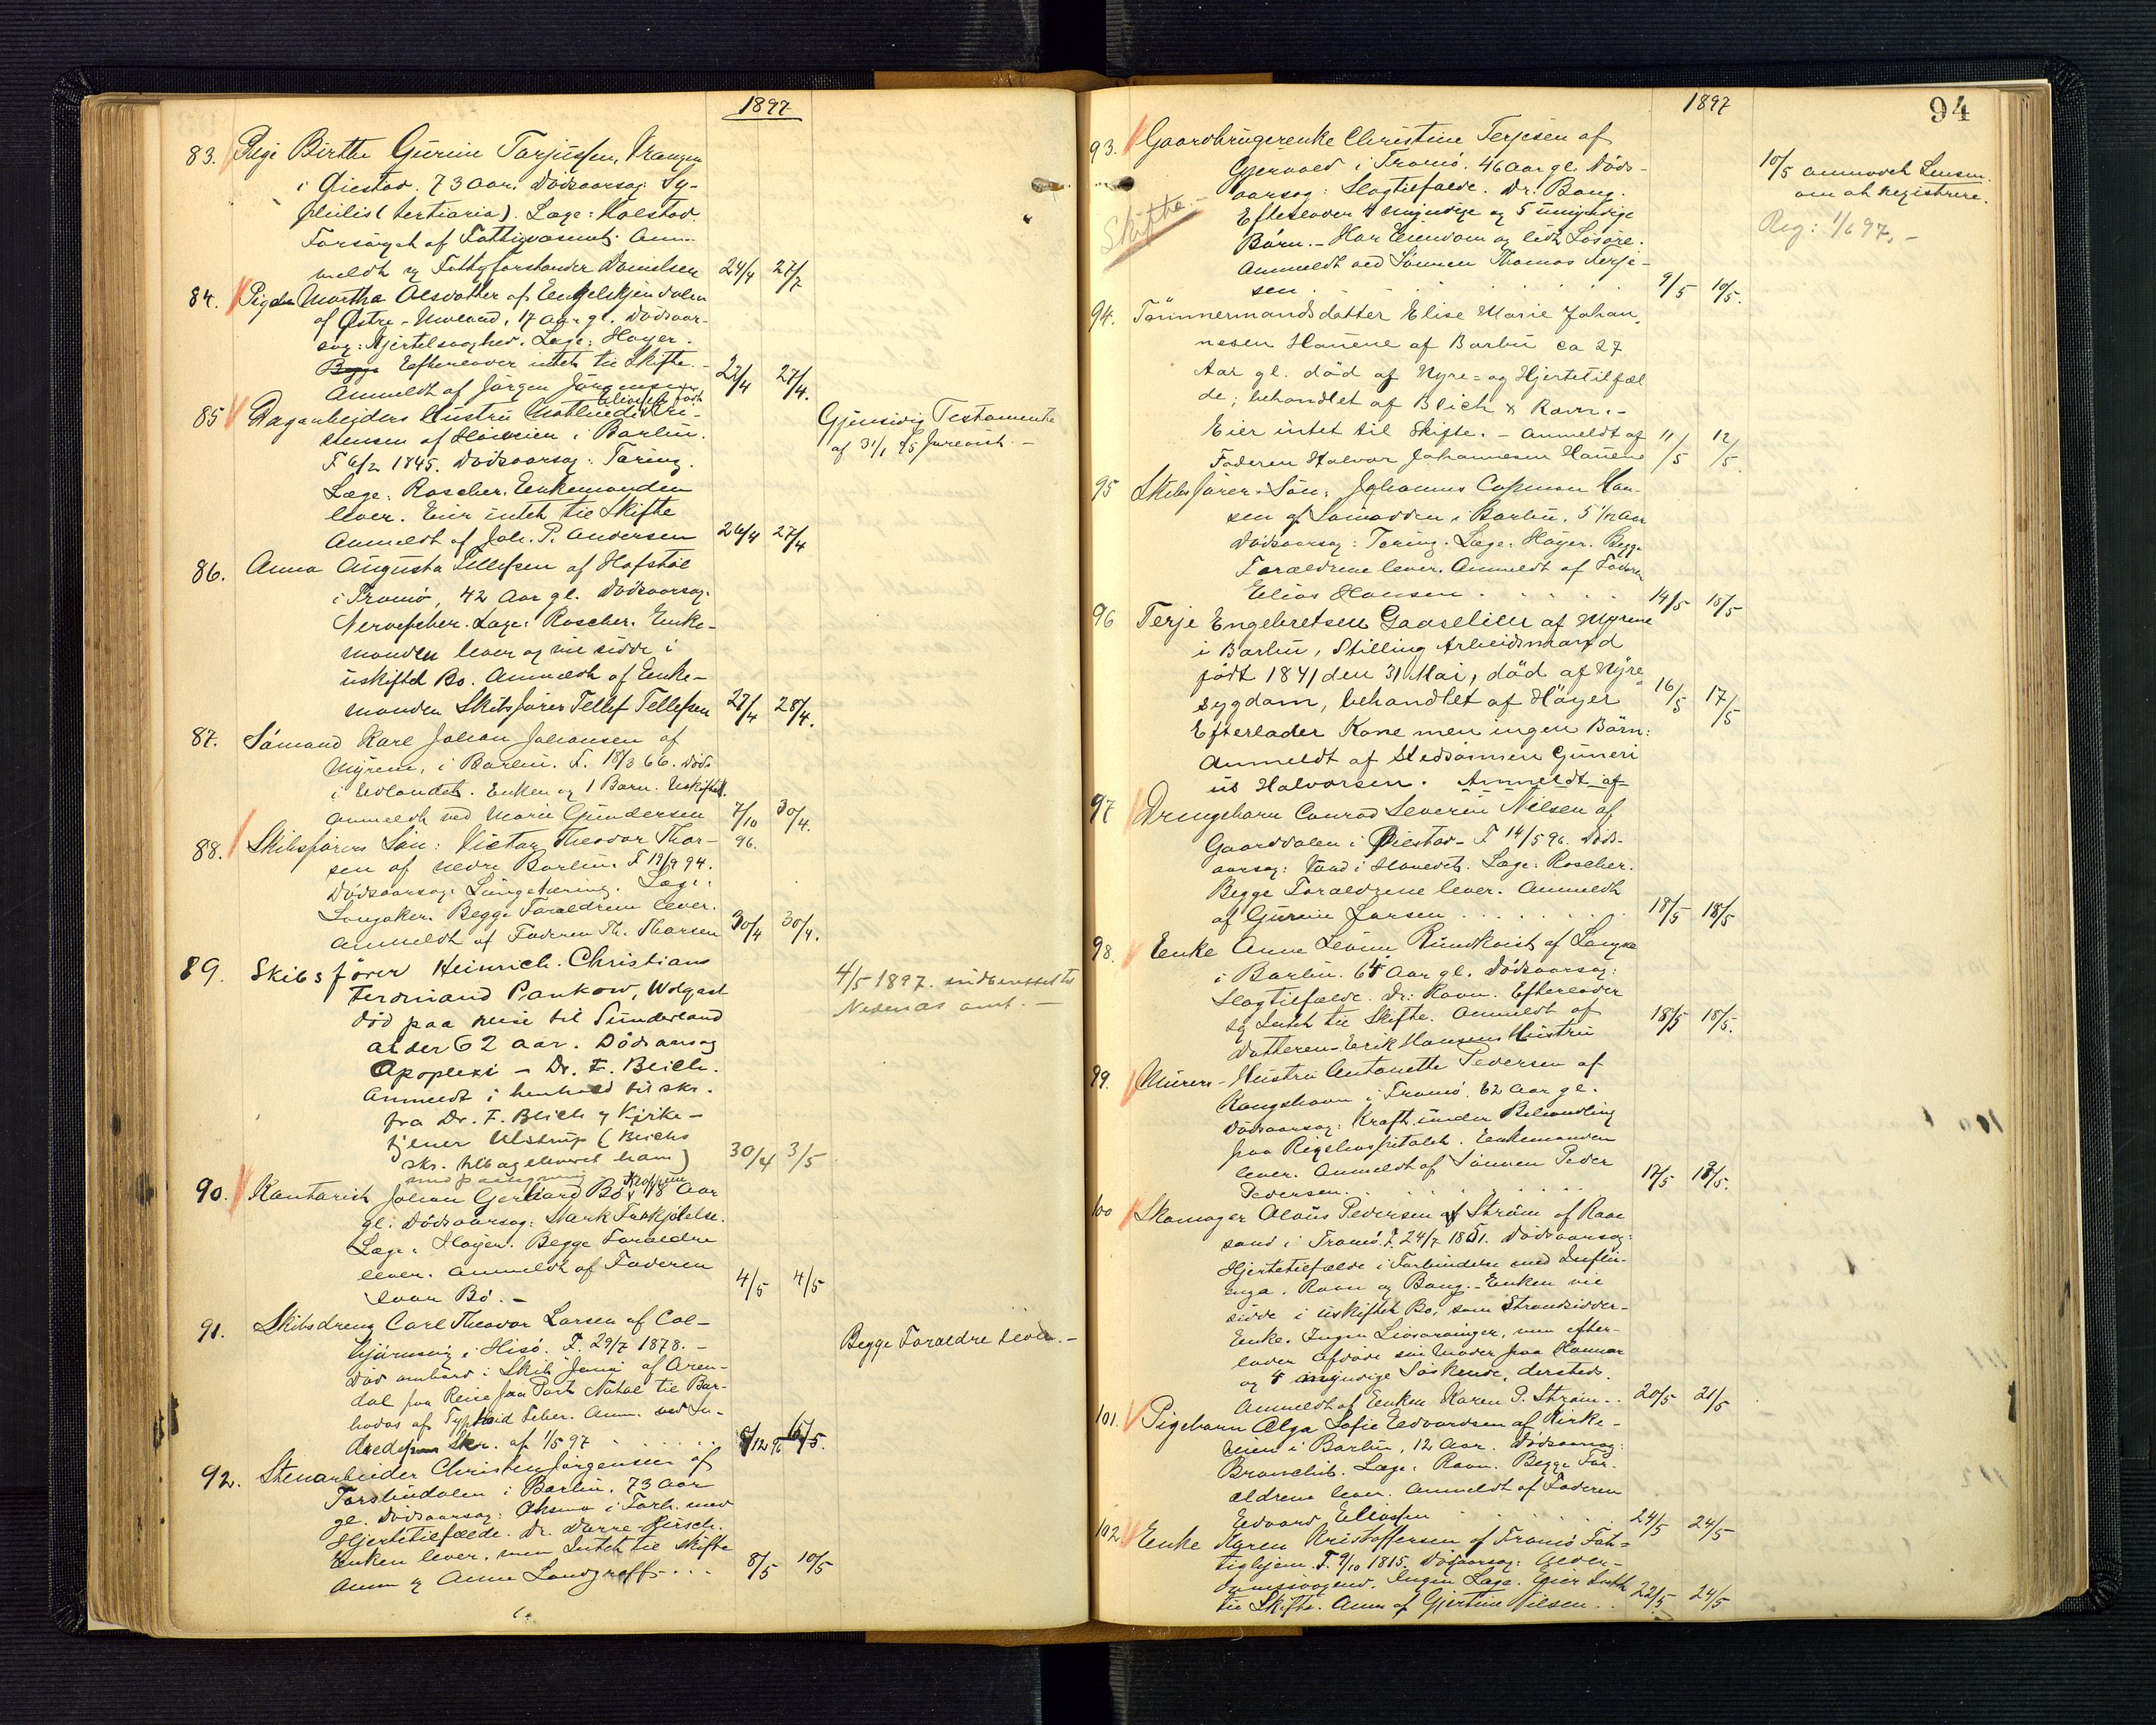 1897
83. Pige Birthe Gurine Tarjussen, Vrangen
i Øiestad. 73 Aar. Dødsaarsag: Sy-
philis (tertiaria). Læge: Kalstad
Forsørget af Fattigvæsenet. Anm-
meldt af Fattigforstander Danielsen 24/4 27/7
84. Pigen Martha Olsdatter af Engelskjendalen
af Østre-Moland, 17 Aar gl. Dødsaar-
sag: Hjertesvaghed. Læge: Høyer.
Begge Efterlader intet til Skifte. -
Anmeldt af Jørgen Jørgensen 22/4 27/4.
85 Dagarbeiders Hustru Mathilde Elisabeth Kri-
stensen af Høiveien i Barbu.
F 6/2 1845. Dødsaarsag: Tæring.
Læge: Roscher. Enkemanden
lever. Eier intet til Skifte
Anmeldt af Joh. P. Andersen 26/4 27/4
Gjensidig Testamente
af 31/1 85 forevist. -
86. Anna Augusta Tellefsen af Hofstøl
i Tromø, 42 Aar gl. Dødsaarsag:
Nervefeber. Læge: Roscher. Enke-
manden lever og vil sidde i
uskiftet Bo. Anmeldt af Enke-
manden Skibsfører Tellef Tellefsen 27/4 28/4.
87. Sømand Karl Johan Johansen af
Myrene, i Barbu. F. 18/3 66. Død
i Udlandet. Enken og 1 Barn. Uskiftet.
Anmeldt ved Marie Gundersen 7/10 30/4.
96.
88. Skibsførers Søn: Victor Theodor Thor-
sen af nedre Barbu. F 19/9 94.
Dødsaarsag: Lungetæring. Læge:
Longaker. Begge Forældrene lever.
Anmeldt af Faderen Th. Thorsen 30/4 30/4.
89. Skibsfører Heinrich Christians
Ferdinand Pankow, Wolgast
død paa reise til Sunderland
alder 62 aar. Dødsaarsag
Apoplexi - Dr. F. Blich.
Anmeldt i henhold til skr.
fra Dr. F. Blich og Kirke-
tjener Ulstrup (Blichs
skr. tilbageleveret ham) 30/4 3/5
4/5 1897. indberettet til
Nedenæs amt. -
90. Kontorist Johan Gerhard Bø, 18 Aar
gl. Dødsaarsag: Stærk Forkjølelse.
Læge: Høyer. Begge Forældre
lever. Anmeldt af Faderen 4/5 4/5
Ivar Bø. -
91. Skibsdreng Carl Theodor Larsen af Col-
bjørnsvig i Hisø. F. 29/7 1878. -
Død ombord i Skib af Aren-
dal paa Reise fra Port Natal til Bar-
bados af Typhoid Feber. Anm. ved
Skr. af 1/5 97 8/12 96 6/5.
Begge Forældre lever. -
92. Stenarbeider Christen Jørgensen af
Torsbudalen i Barbu, 73 Aar
gl. Dødsaarsag: Astma i Forb. med
Hjertetilfælde. Dr. Darre Hirsch.
Enken lever, men Intet til Skifte
Anm af Anne Landgraff. . . 8/5 10/5
94
1897
93. Gaardbrugerenke Christine Terjesen af
Gjervold i Tromø. 46 Aar gl. Døds-
aarsag: Slagtilfælde. Dr. Bang.
Skifte. -
Efterlader 4 myndige og 5 umyndige
Børn. - Har Eiendom og lidt Løsøre.
Anmeldt ved Sønnen Thomas Terje-
sen . . . . . 9/5 10/5.
10/5 anmodet Lensm.
om at registrere.
Reg: 1/6 97. -
94. Tømmermandsdatter Elise Marie Johan-
nesen Hauene af Barbu ca 27
Aar gl. død af Nyre- og Hjertetilfæl
de; behandlet af Blich & Ravn. -
Eier intet til Skifte. - Anmeldt af
Faderen Halvor Johannesen Hauene 11/5 12/5.
95 Skibsfører Søn: Johannes Han-
sen af i Barbu. 5 1/12 Aar
Dødsaarsag: Tæring. Læge: Høyer. Begge
Forældrene lever. Anmeldt af Faderen
Elias Hansen . . . . . 14/5 15/5
96 Terje Engebretsen Gaaselien af Myrene
i Barbu, Stilling Arbeidsmand
født 1841 den 31 Mai, død af Nyre
sygdom, behandlet af Høyer 16/5 17/5
Efterlader Kone men ingen Børn:
Anmeldt af Stedsønnen Guneri
us Halvorsen. Anmeldt af
97 Drengebarn Conrad Severin Nilsen af
Gaarddalen i Øiestad. F 14/5 96. Døds-
aarsag: Vand i Hovedet. Læge: Roscher.
Begge Forældrene lever. Anmeldt
af Gurine Larsen . . . . . 18/5 18/5
98. Enke Anne Lovise Rundkvist af Langsæ
i Barbu. 64 Aar gl. Dødsaarsag:
Slagtilfælde. Dr: Ravn. Efterlader
sig Intet til Skifte. Anmeldt af 18/5 18/5.
Datteren Erik Hansens Hustru
99. Murers-Hustru Antonette Pedersen af
Kongshavn i Tromø. 62 Aar gl.
Dødsaarsag: Kræft under Behandling
paa Rigshospitalet. Enkemanden
lever. Anmeldt af Sønnen Peder
Pedersen. . . . . . 17/5 18/5.
100 Skomager Olaus Pedersen Strøm af Rave
sand i Tromø. F. 24/7 1851. Dødsaarsag:
Hjertetilfælde i Forbindelse med Influ-
enza. Ravn og Bang. - Enken vil
sidde i uskiftet Bo, som Strandsidder-
Enke. Ingen Livsarvinger, men efter-
lader afdøde sin Moder paa
og 5 myndige Søskende, dersteds.
Anmeldt af Enken Karen P. Strøm. . 20/5 21/5
101. Pigebarn Olga Sofie Edvardsen af Kirke-
veien i Barbu, 12 Aar. Dødsaarsag:
Bronchit. Læge: Ravn. Begge For-
ældrene lever. Anmeldt af Faderen
Edvard Eliassen . . . . . 24/5 24/5
102. Enke Karen Kristoffersen af Tromø Fat-
tighjem. F. 9/10 1815. Dødsaarsag: Alder-
domssvaghed. Ingen Læge. Eier Intet
til Skifte. Anm af Gjertine Nilsen. . 22/5 24/5